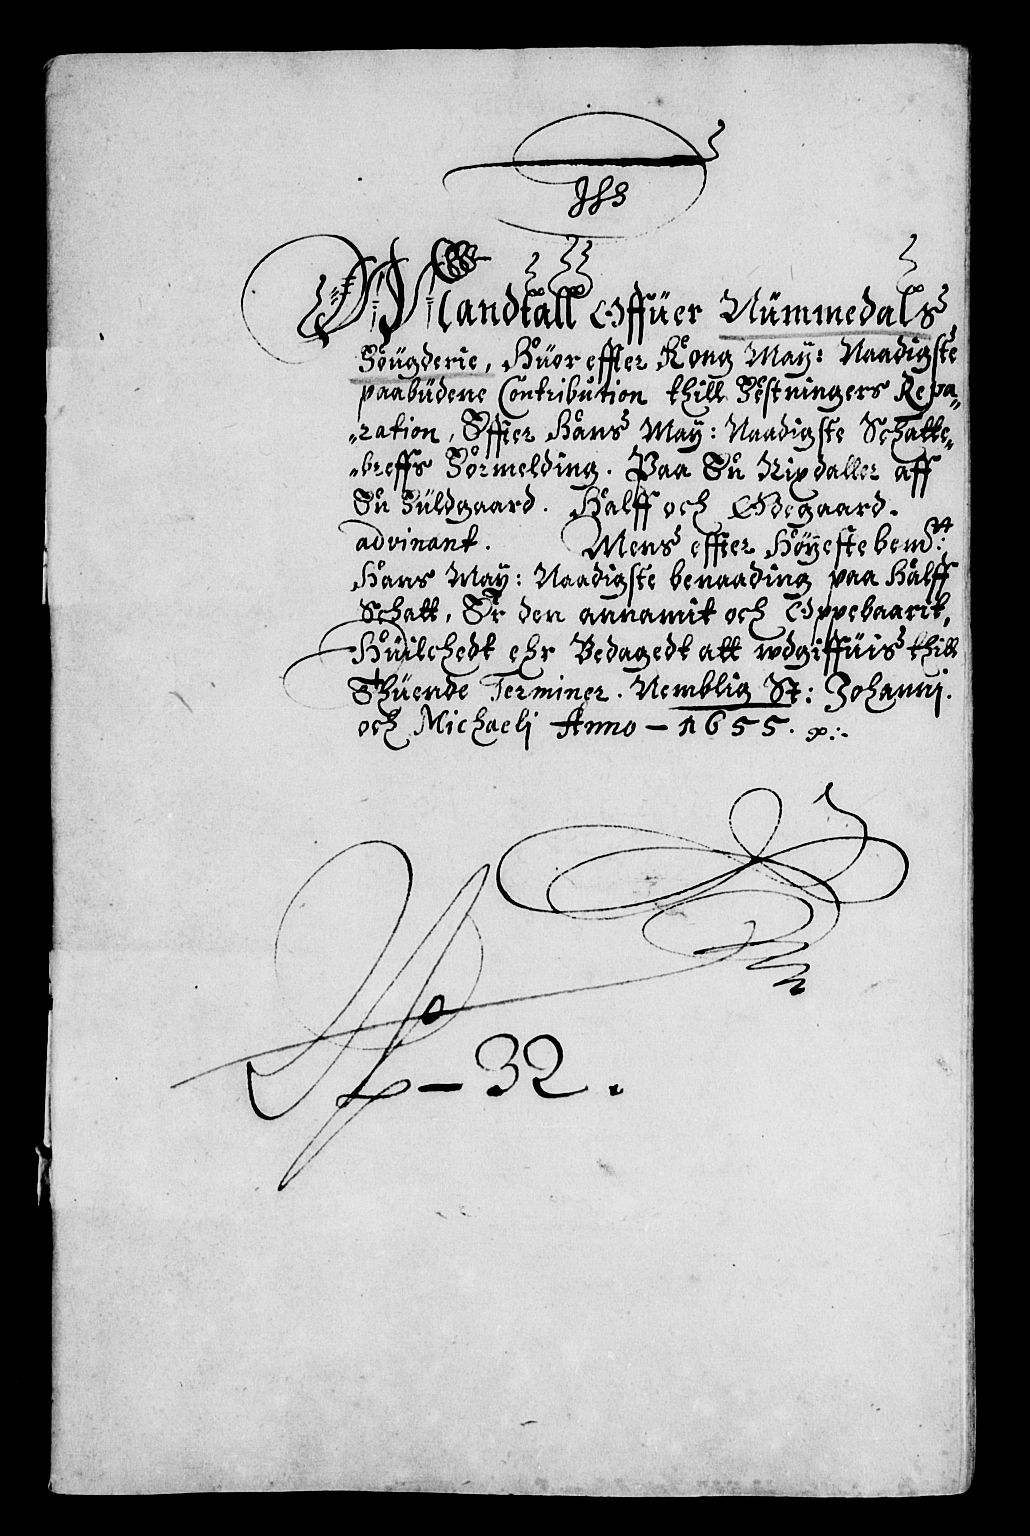 Mandtall Offüer Nümmedals
Fougderie, Huor effter Kong May: Naadigste
paabüdene Contribution thill Festningers Repa„
„ration, Effter Hans May: Naadigste Schatte„
„breffs Formelding. Paa En Rixdaller aff
En Füldgaard. Halff och Ødegaard.
advinant. Mens effter Høyestebemte:
Hans May: Naadigste benaading paa Halff
Schatt, Er den annamit och Oppebaarit,
Huilchedt ehr Bedagedt att wdgiffuis thill
Thuende Terminer. Nemblig St: Johanni.
och Michaeli Anno – 1655. p:
No – 32.